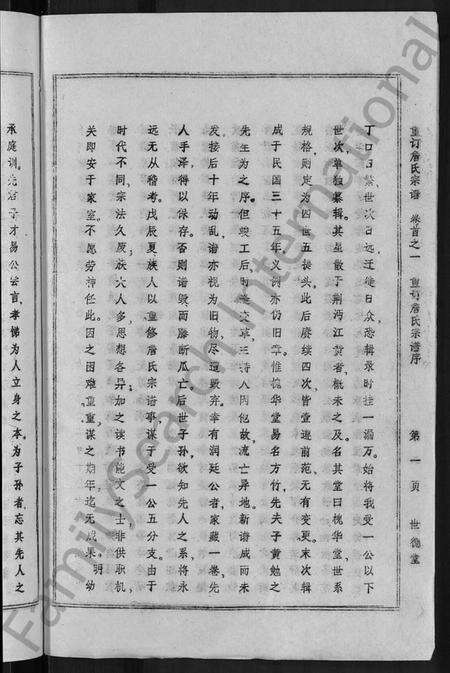 重订詹氏宗谱 卷首之一 重订詹氏宗谱序 第一页 世德堂
丁口日繁世次日远迁徙日众愁辑录时挂一漏万。始将我受一公以下
世次,单独纂辑。其星散于荆沔江黄者概未之及。名其堂曰槐华堂。世系
规格则定为四世五提头,此后赓续四次,皆壹遵前范,无有变更。末次辑
成于民国三十五年,义例亦仍旧章。惟槐华堂易名方竹。先夫子黄勉之
先生为之序。但竣工后时
发。接后十年动乱谱亦视为旧物,尽遭毁弃。幸有润廷公者家藏一卷,先
人手泽得以保存。否则谱毁而牒断瓜亡。后世子孙,欲知先人之系,将永
远无从稽考。戊辰夏,族人以重修詹氏宗谱事谋于受一公五分支。由于
时代不同,宗法久废,族大人多,思想各异,加之读书能文之士,非供职机
关即安于家室。不愿劳神任此。因之困难重重,谋之期年迄无成果。明幼
承庭训。先君子才易公尝言,孝悌为人立身之本。为子孙者忘其先人之
FamilySearch International